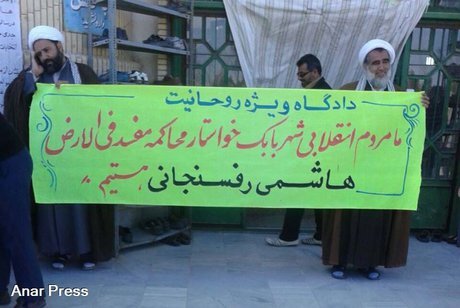 دادگاه ویژه روحانیت
ما مردم انقلابی شهربابک خواستار محاکمه مفسد فی الارض
هاشمی رفسنجانی هستیم.
Anar Press